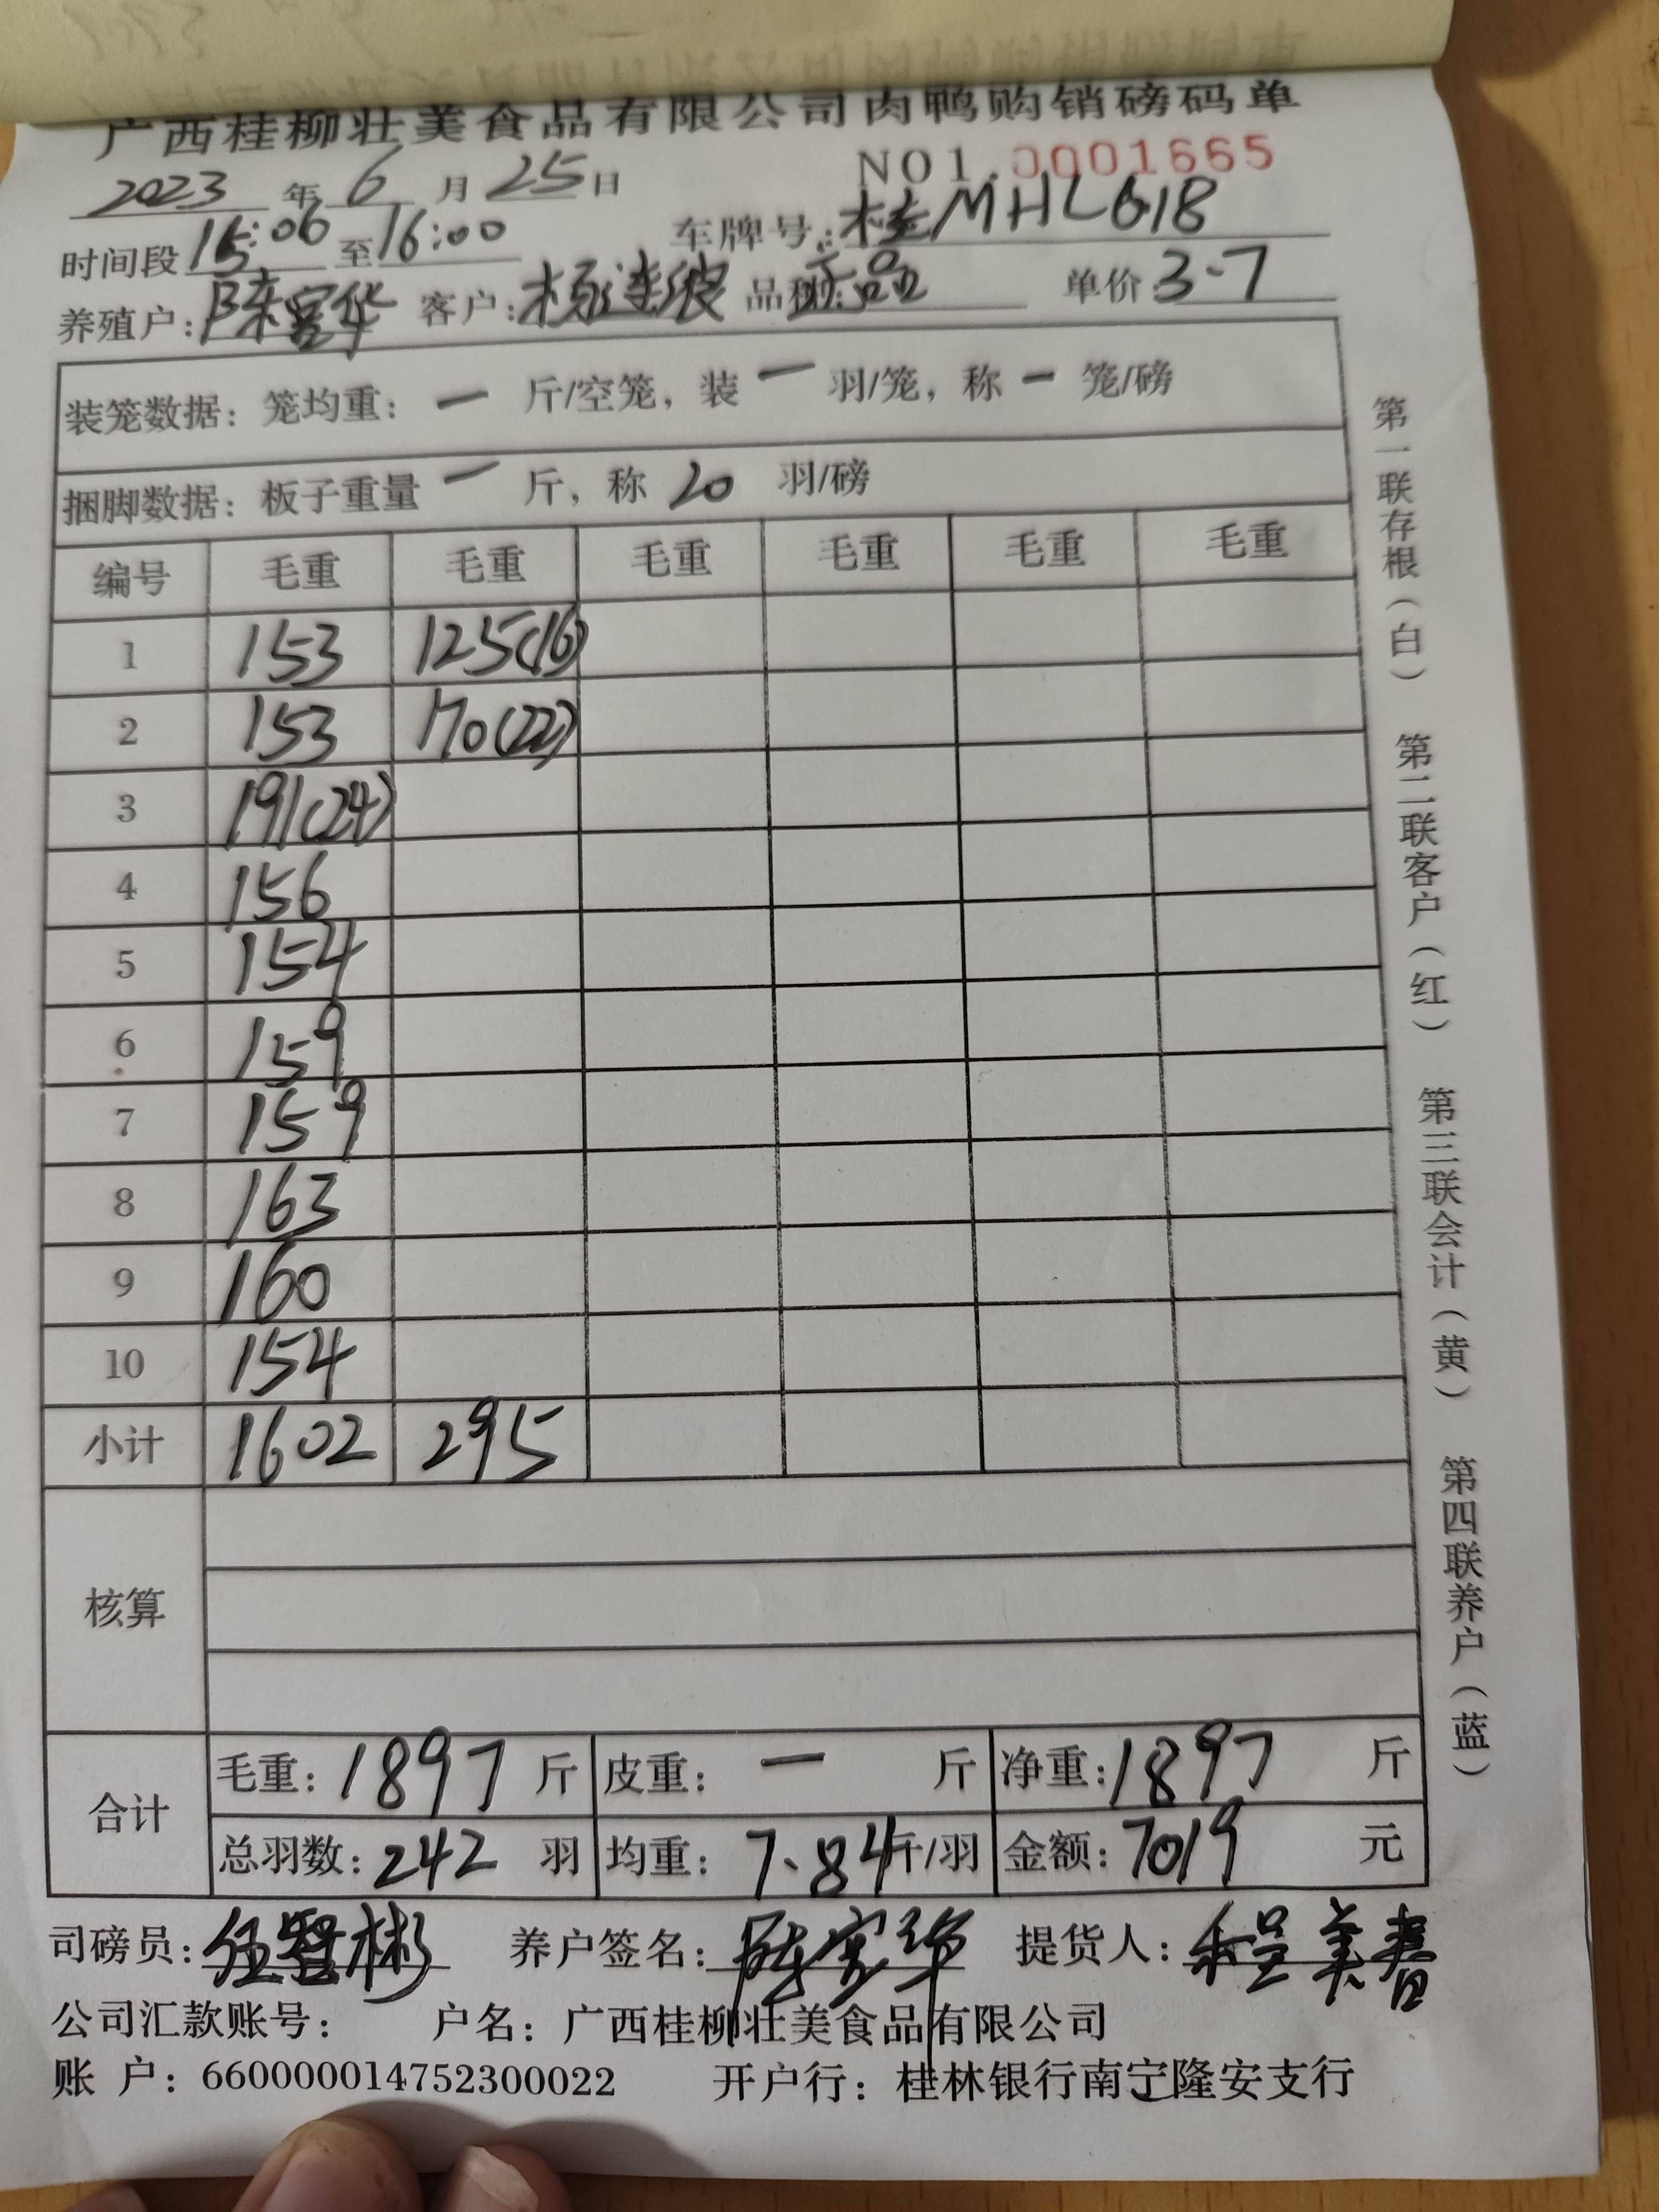 广西桂柳壮美食品有限公司肉鸭购销磅码单
2023 年 6 月 25 日 NO1.0001665
时间段 15:06 至 16:00 车牌号: 桂MHL618
养殖户: 陈宝华 客户: 杨连波 品种: 正品 单价 3.7
装笼数据: 笼均重: 一 斤/空笼, 装 一 羽/笼, 称 一 笼/磅
捆脚数据: 板子重量 一 斤, 称 20 羽/磅
编号 毛重 毛重 毛重 毛重 毛重 毛重
1 153 125(16)
2 153 170(22)
3 191(24)
4 156
5 154
6 159
7 159
8 163
9 160
10 154
小计 1602 295
核算
合计 毛重: 1897 斤 皮重: 一 斤 净重: 1897 斤
总羽数: 242 羽 均重: 7.84 斤/羽 金额: 7019 元
司磅员: 彬 养户签名: 陈宝华 提货人: 程美春
公司汇款账号: 户名: 广西桂柳壮美食品有限公司
账 户: 660000014752300022 开户行: 桂林银行南宁隆安支行
第一联存根(白) 第二联客户(红) 第三联会计(黄) 第四联养户(蓝)